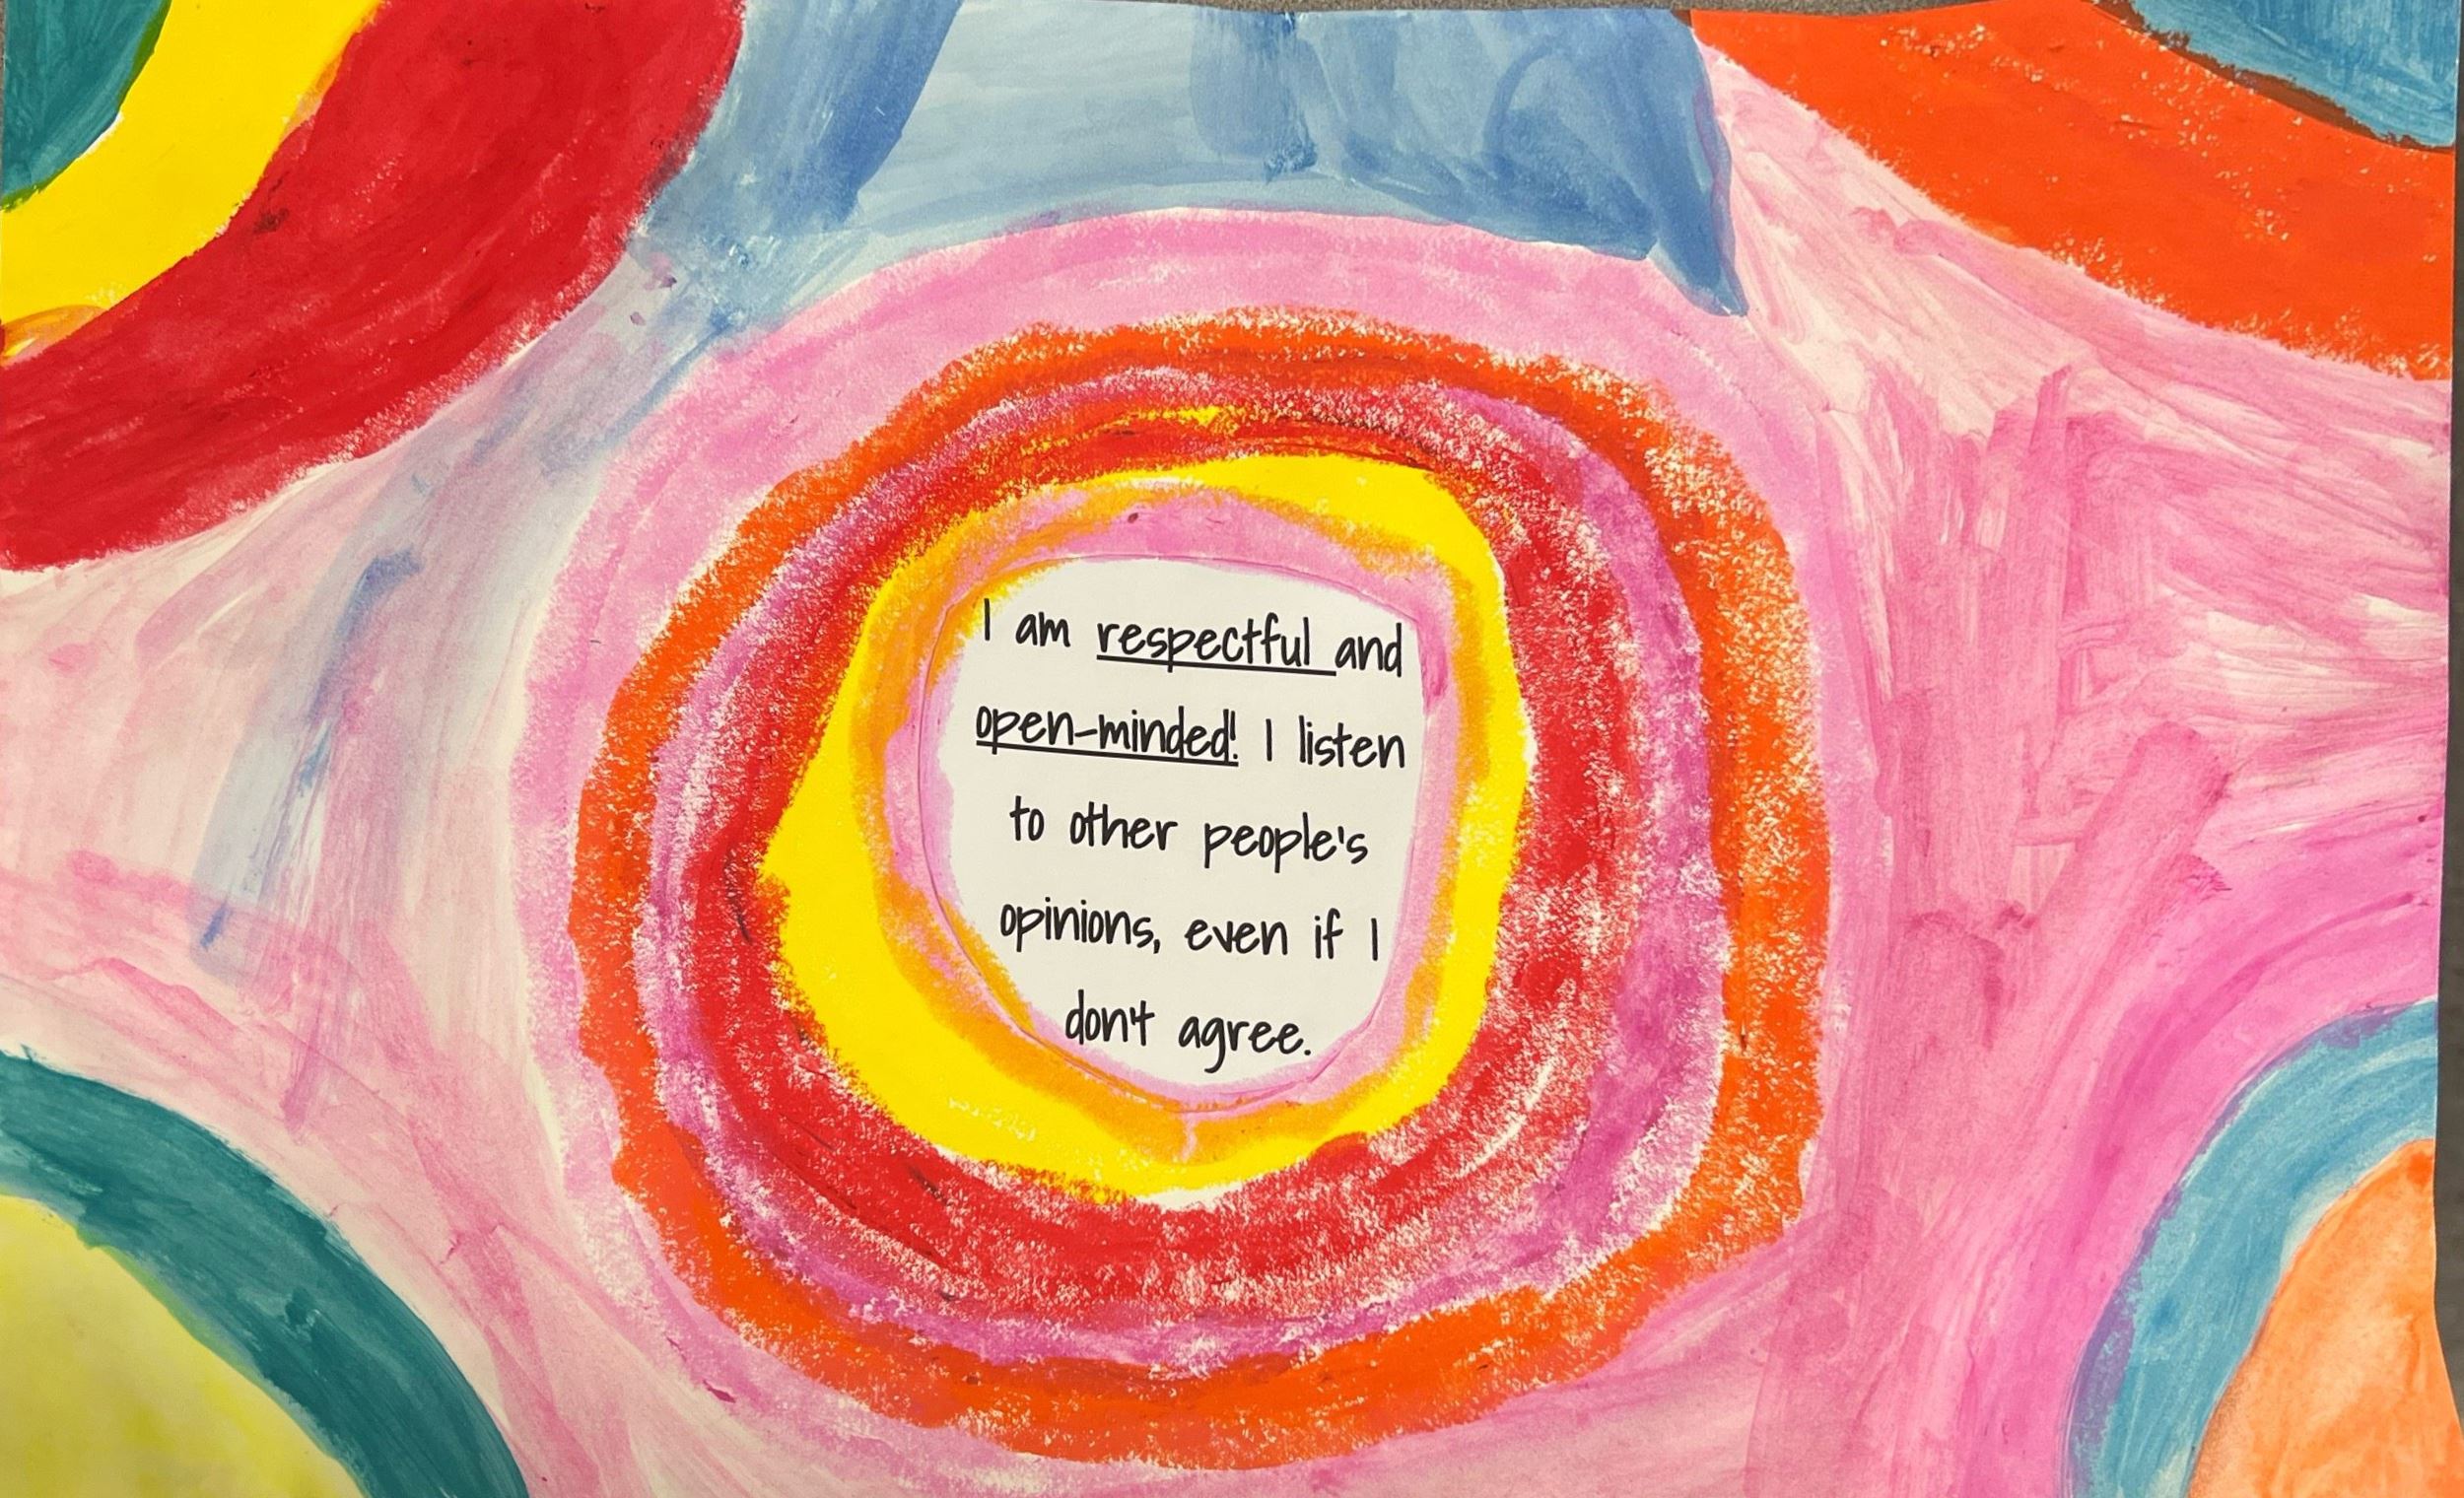 I am respectful and
open-minded! I listen
to other people's
opinions, even if I
don't agree.